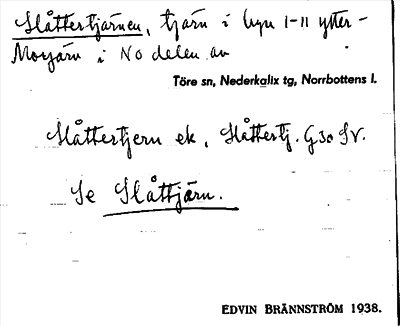 Slåttertjärnen, tjärn i byn 1-11 ytter-
Morjärn i NO delen av
Töre sn, Nederkalix tg, Norrbottens l.
Slåttertjern ek, Slåttertj. G30 SV.
Se Slåttjärn.
EDVIN BRÄNNSTRÖM 1938.